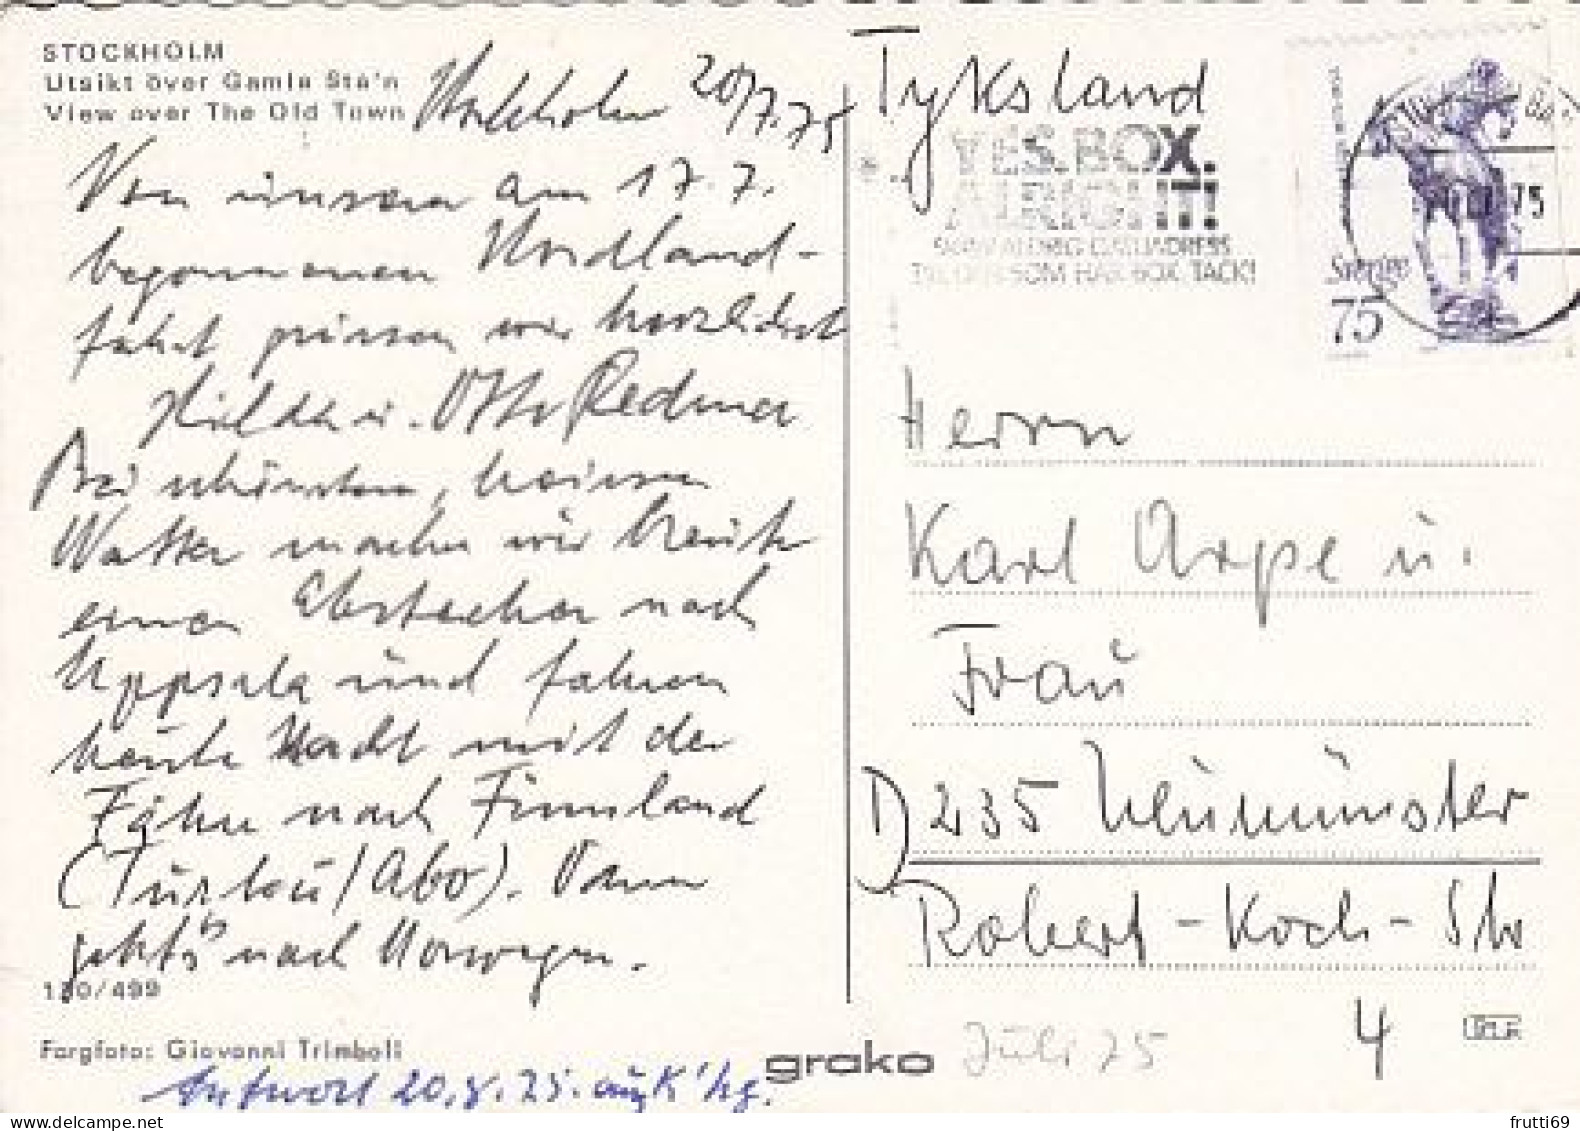 STOCKHOLM
Utsikt över Gamla Sta'n
View over The Old Town
Stockholm 20/7.75
Von unserer am 17.7.
begonnenen Nordland-
fahrt grüssen wir herzlichst
Hilde u. Otto Redmer
Bei schönstem, heissem
Wetter machen wir heute
einen Abstecher nach
Uppsala und fahren
heute Nacht mit der
Fähre nach Finnland
(Turku/Abo). Dann
geht's nach Norwegen.
130/499
Färgfoto: Giovanni Trimboli
Antwort 20.8.75. aus K'hg.
grako
Tyksland
YES. BOX.
ALRIGHT!
GLÖM ALDRIG GATUADRESS
TILL DEN SOM HAR BOX. TACK!
Sverige
75
75
Herrn
Karl Arpe u.
Frau
D 235 Neumünster
Robert-Koch-Str
4
Juli 75
frutti69